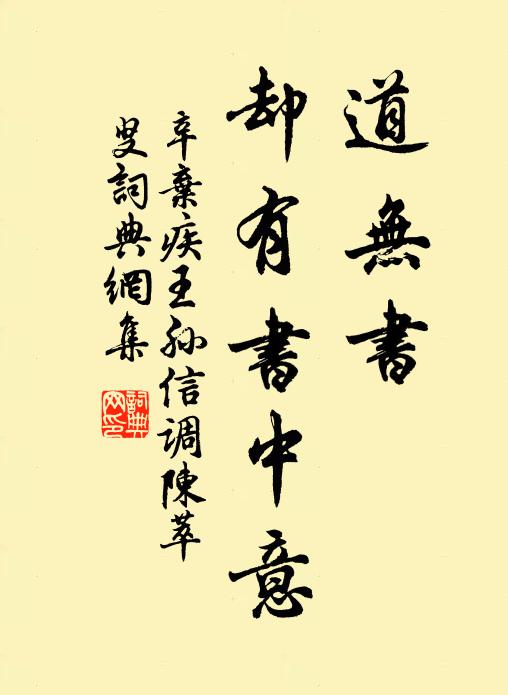 道無書
却有書中意
辛棄疾王孙信调陳萃
叟詞典網集
詞典
网印